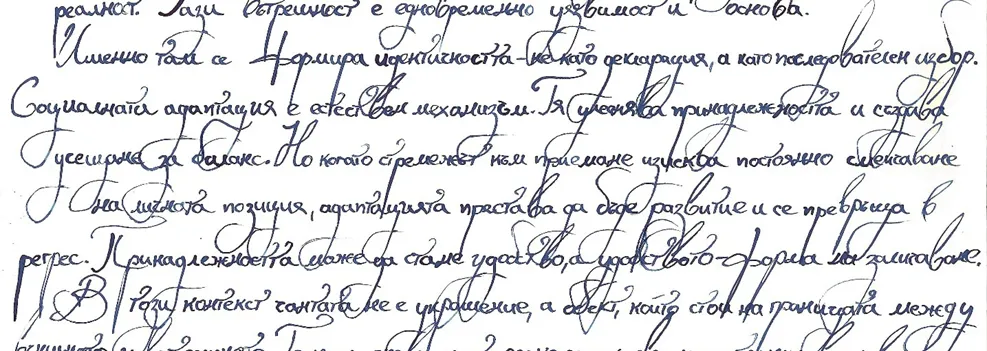 реалност. Тази вътрешност е едновременно уязвимост и основа.
Именно там се формира идентичността - не като декларация, а като последователен избор.
Социалната адаптация е естествен механизъм. Тя улеснява принадлежността и създава
усещане за баланс. Но когато стремежът към приемане изисква постоянно смекчаване
на личната позиция, адаптацията престава да бъде развитие и се превръща в
регрес. Принадлежността може да стане удобство, а удобството - форма на заличаване.
В този контекст чантата не е украшение, а обект, който стои на границата между